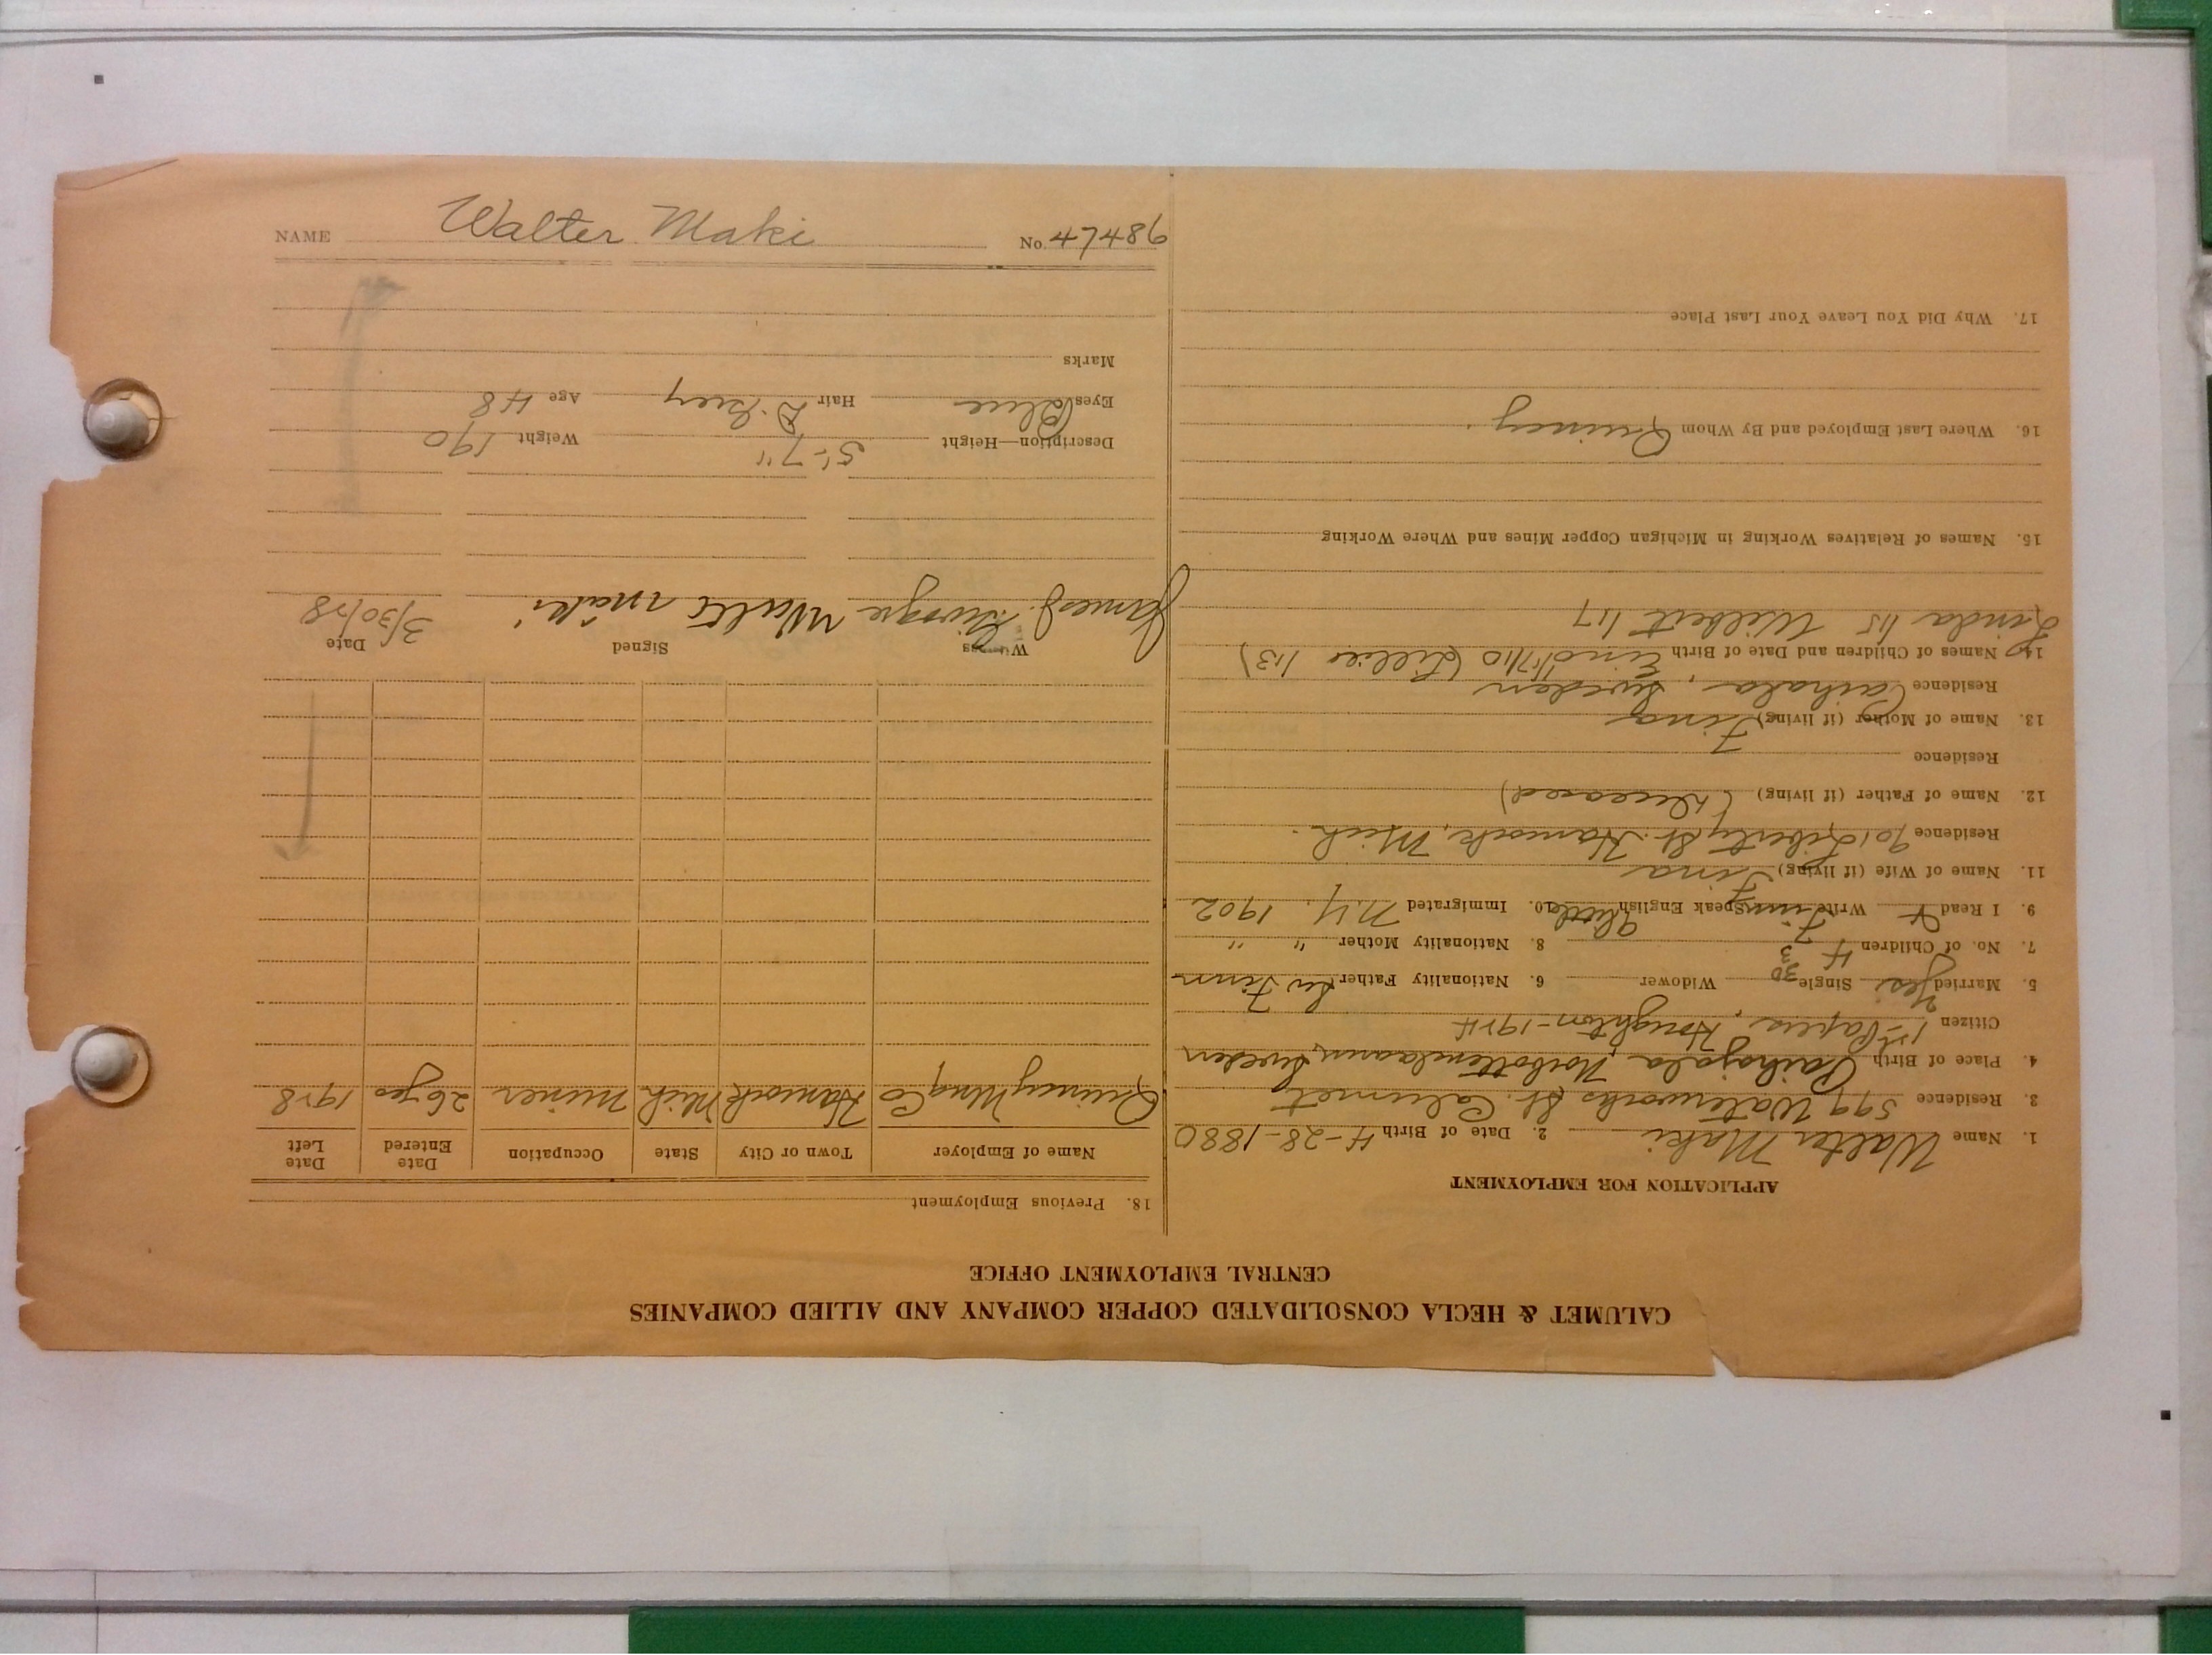 NAME Walter Maki No. 47486
CALUMET & HECLA CONSOLIDATED COPPER COMPANY AND ALLIED COMPANIES
CENTRAL EMPLOYMENT OFFICE
APPLICATION FOR EMPLOYMENT
1. Name Walter Maki 2. Date of Birth 4-28-1880
3. Residence 599 Waterworks St. Calumet
4. Place of Birth Norbottenlaann, Sweden
Citizen 1st Papers, Houghton-1924
5. Married Yes Single Widower 6. Nationality Father Finn
7. No. of Children 4 8. Nationality Mother " "
9. I Read Write Finn Speak English little 10. Immigrated N.Y. 1902
11. Name of Wife (if living) Fina
Residence 901 Liberty St. Hancock, Mich.
12. Name of Father (if living) (Deceased)
Residence
13. Name of Mother (if living) Fina
Residence Sweden
14. Names of Children and Date of Birth Eino 1/7/10 (Lillie 1/13)
Linda 1/15 Wilbert 1/17
15. Names of Relatives Working in Michigan Copper Mines and Where Working
16. Where Last Employed and By Whom Quincy.
17. Why Did You Leave Your Last Place
18. Previous Employment
Name of Employer Town or City State Occupation Date Entered Date Left
Quincy Mng Co Hancock Mich miner 26 yrs 1928
Witness Signed Date
James J. Walter maki 3/30/28
Description—Height 5'-7" Weight 190
Eyes Blue Hair D. Grey Age 48
Marks